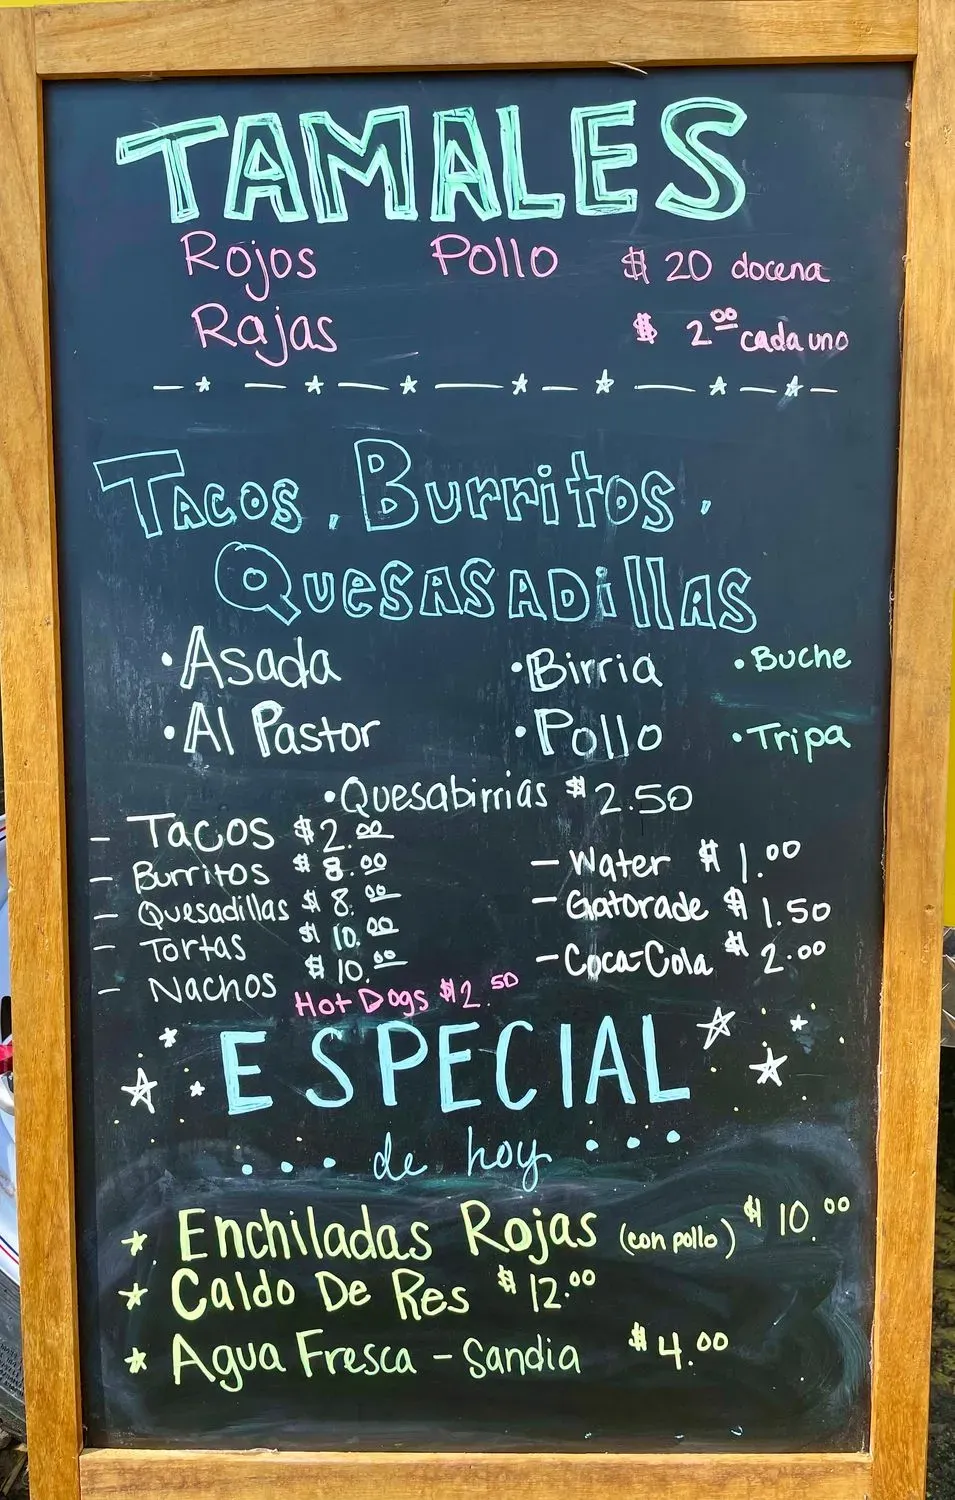 TAMALES
Rojos Pollo $20 docena
Rajas $2.00 cada uno
Tacos, Burritos,
QuesASADillas
• Asada • Birria • Buche
• Al Pastor • Pollo • Tripa
• Quesabirrias $2.50
- Tacos $2.00
- Burritos $8.00
- Quesadillas $8.00
- Tortas $10.00
- Nachos $10.00
Hot Dogs $2.50
- Water $1.00
- Gatorade $1.50
- Coca-Cola $2.00
ESPECIAL
... de hoy ...
* Enchiladas Rojas (con pollo) $10.00
* Caldo De Res $12.00
* Agua Fresca - Sandia $4.00